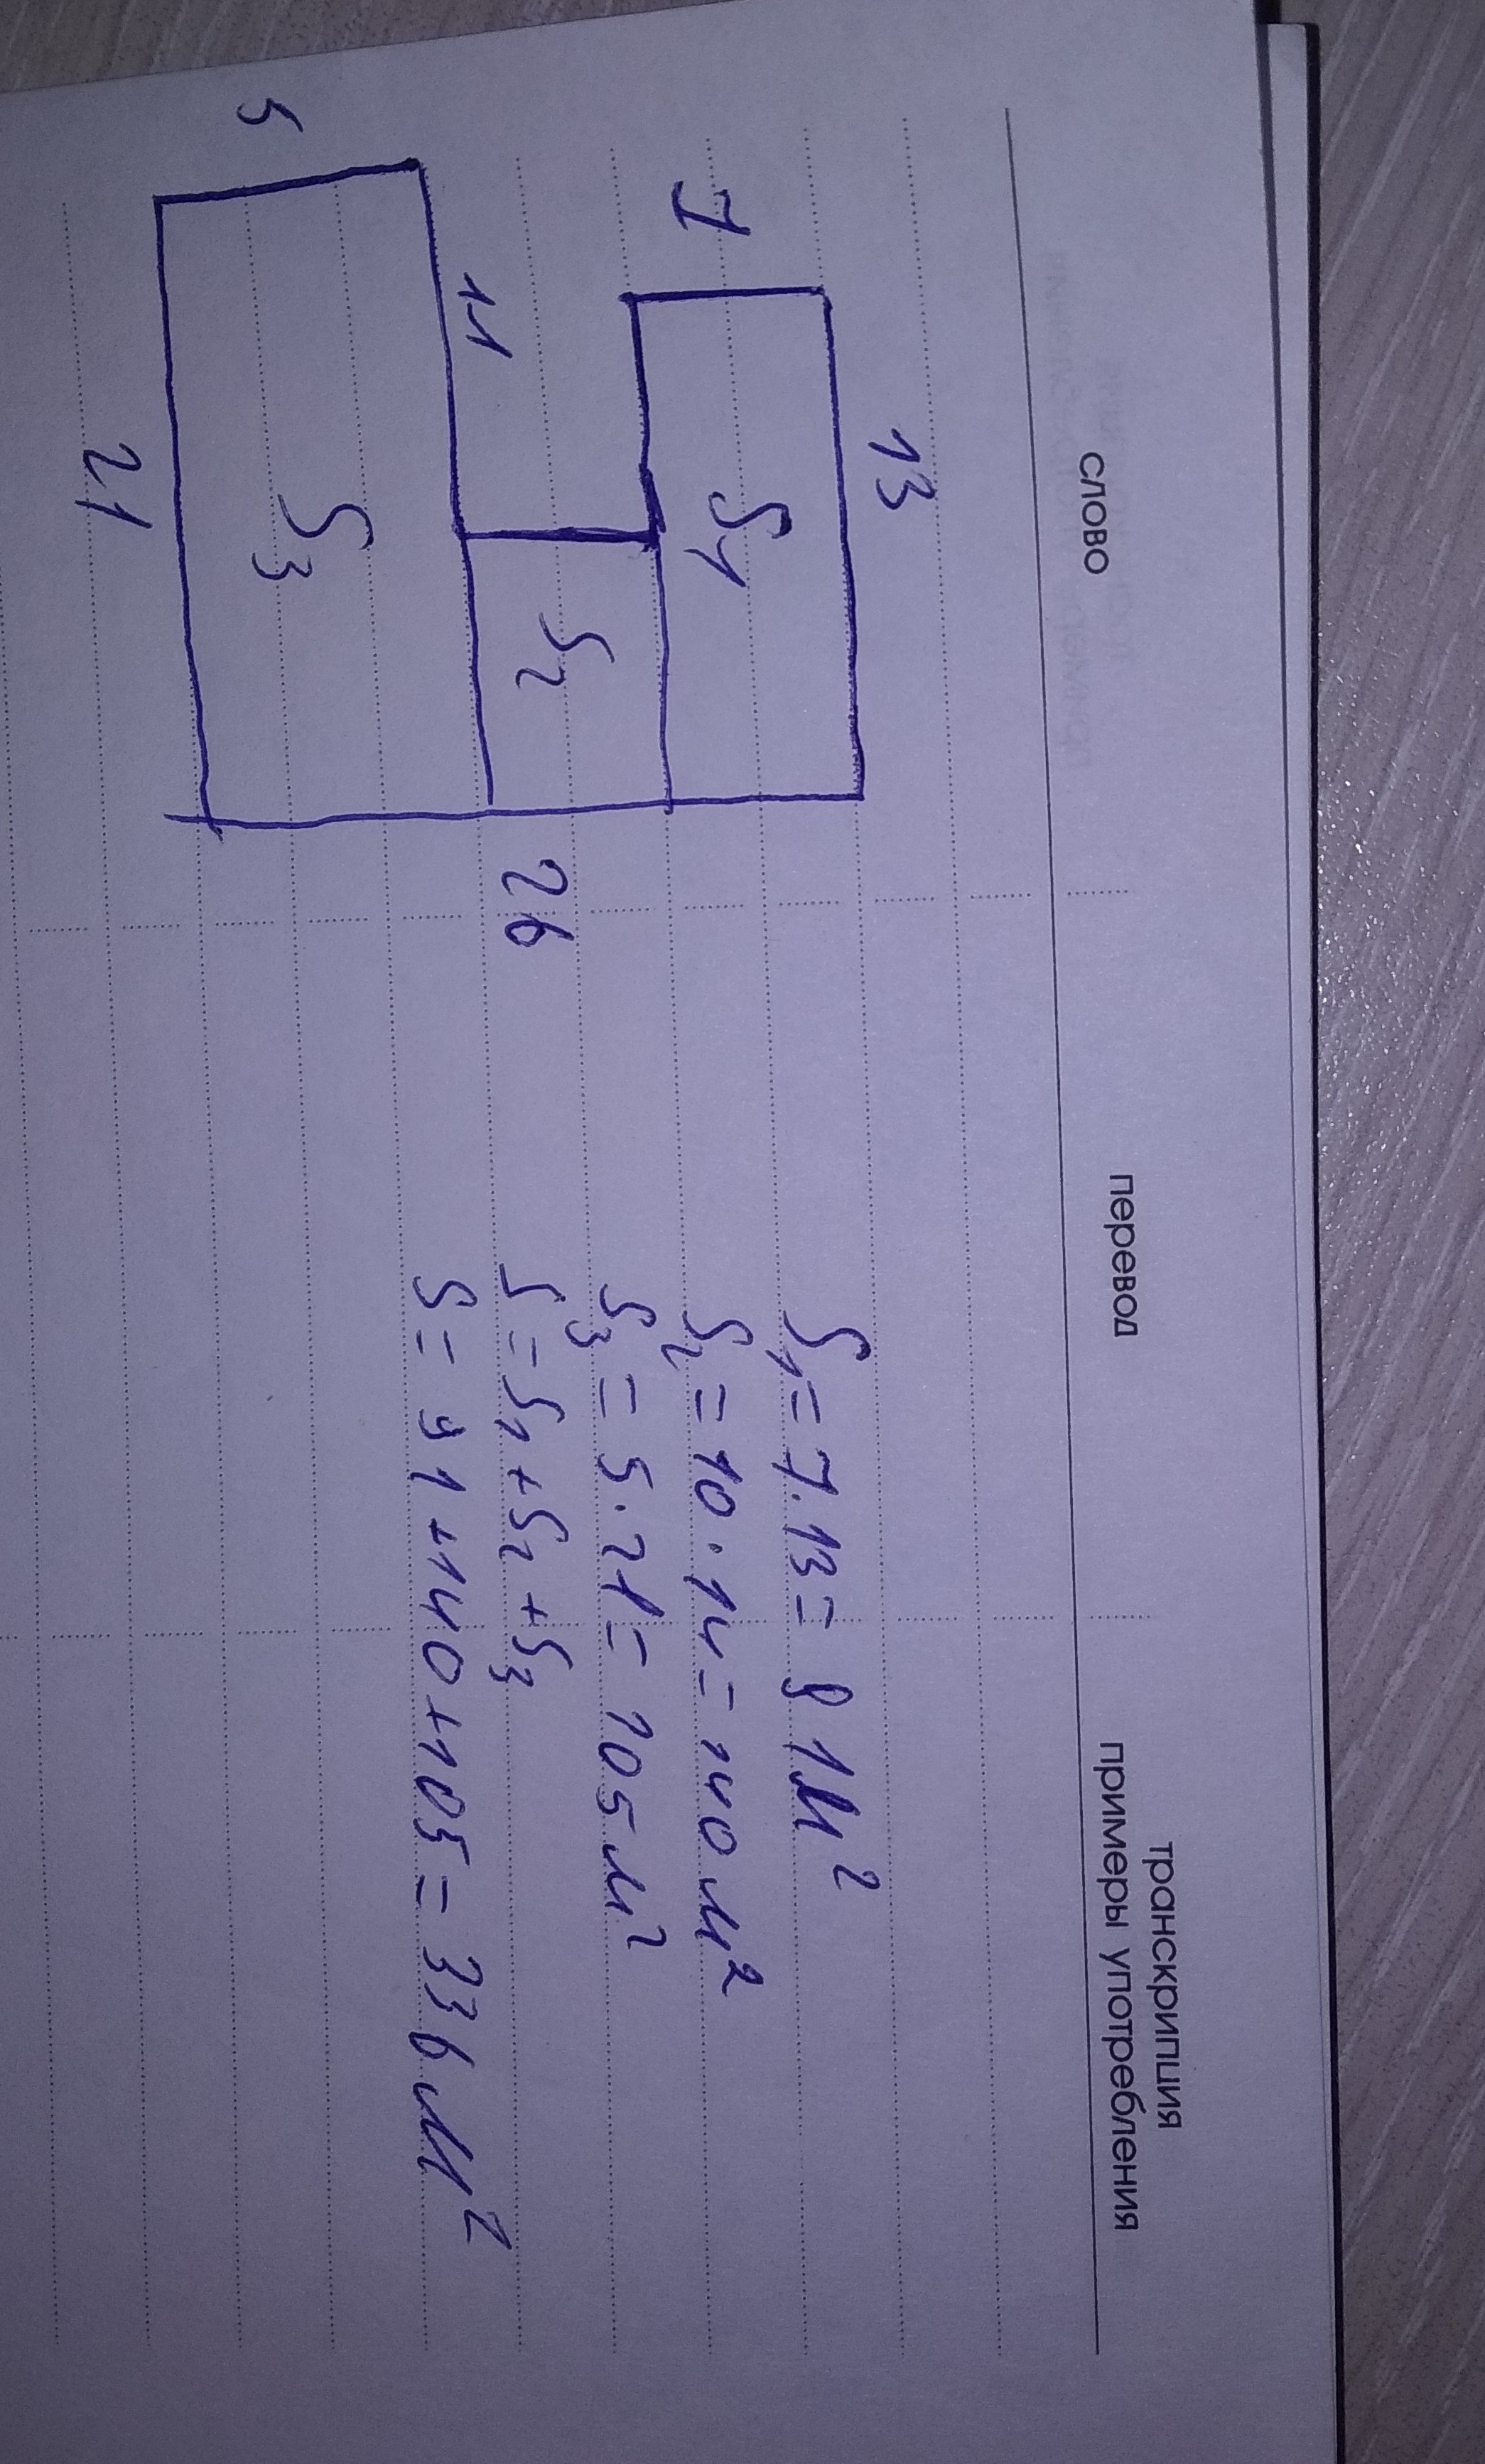 слово
перевод
транскрипция
примеры употребления
13
7
S1
11
S2
26
5
S3
21
S1 = 7 · 13 = 91 м²
S2 = 10 · 14 = 140 м²
S3 = 5 · 21 = 105 м²
S = S1 + S2 + S3
S = 91 + 140 + 105 = 336 м²